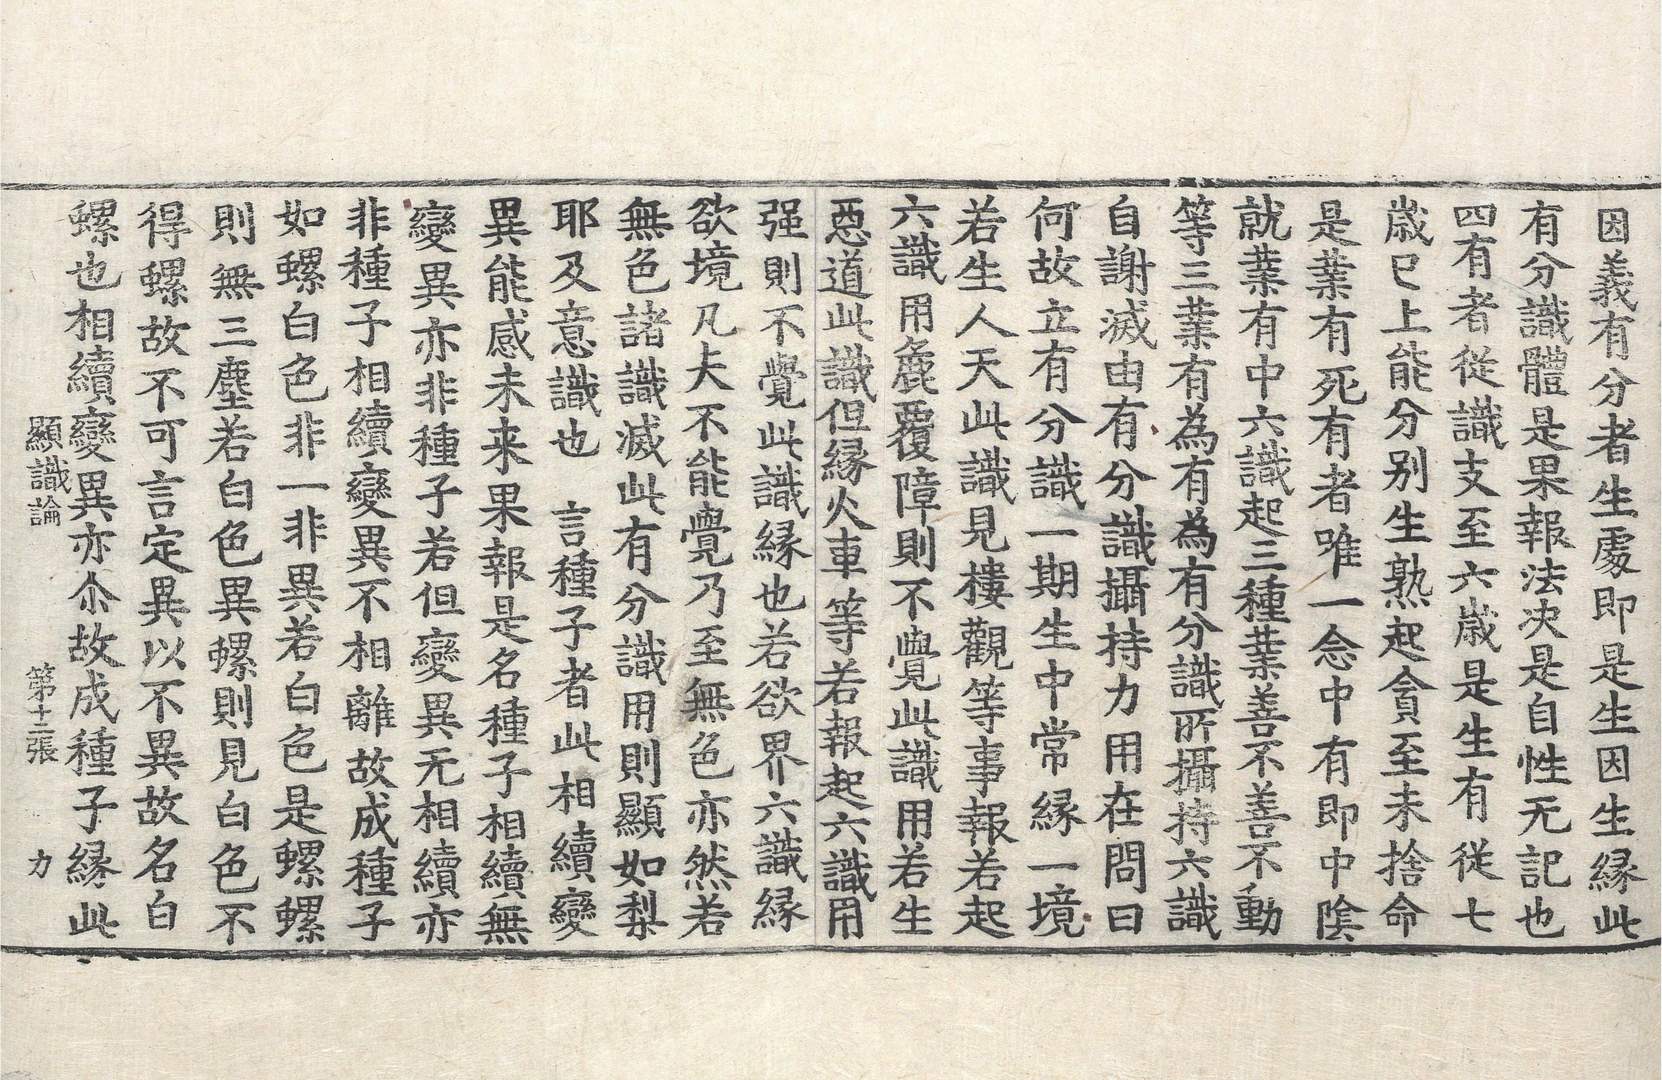 因義有分者生處即是生因生緣此
有分識體是果報法决是自性无記也
四有者從識支至六歲是生有從七
歲已上能分別生熟起貪至未捨命
是業有死有者唯一念中有即中陰
就業有中六識起三種業善不善不動
等三業有為有為有分識所攝持六識
自謝滅由有分識攝持力用在問曰
何故立有分識一期生中常緣一境
若生人天此識見樓觀等事報若起
六識用麁覆障則不覺此識用若生
惡道此識但緣火車等若報起六識用
强則不覺此識緣也若欲界六識緣
欲境凡夫不能覺乃至無色亦然若
無色諸識滅此有分識用則顯如梨
耶及意識也　言種子者此相續變
異能感未来果報是名種子相續無
變異亦非種子若但變異无相續亦
非種子相續變異不相離故成種子
如螺白色非一非異若白色是螺螺
則無三塵若白色異螺則見白色不
得螺故不可言定異以不異故名白
螺也相續變異亦尒故成種子緣此
顯識論　第十二張　力